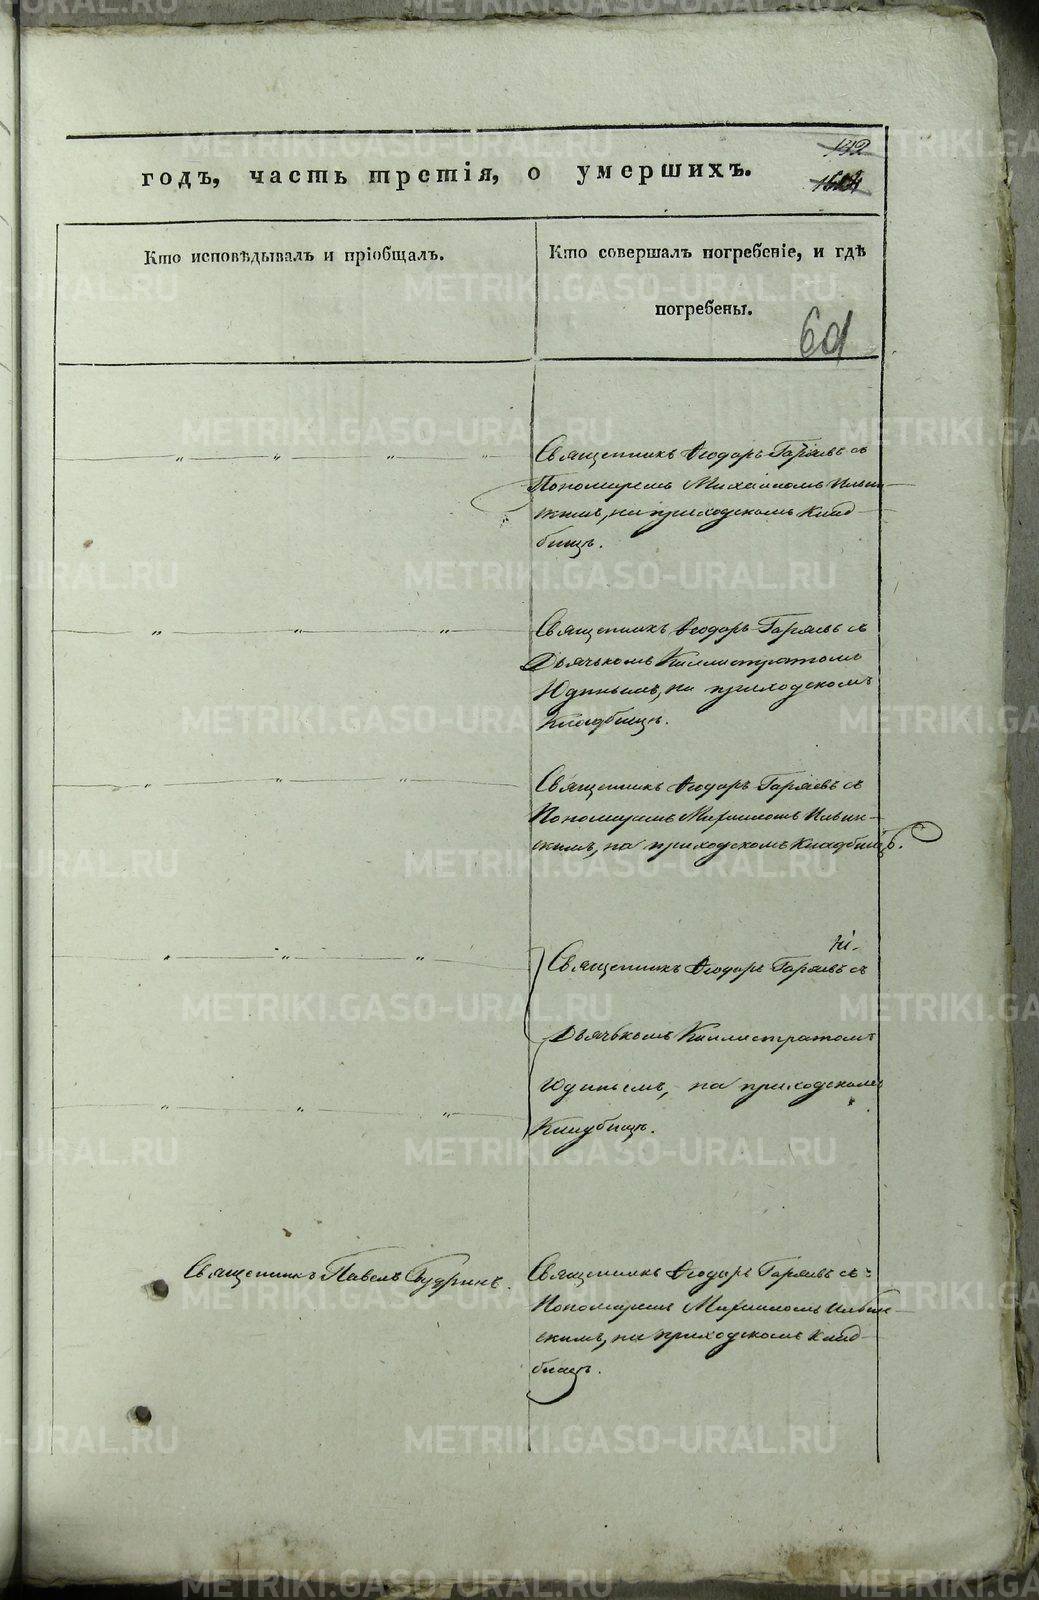 132
годъ, часть третія, о умершихъ.
Кто исповѣдывалъ и пріобщалъ.
Кто совершалъ погребеніе, и гдѣ
погребены.
Священникъ Ѳеодоръ Гаряевъ съ
Пономаремъ Михаиломъ Ильин-
скимъ, на приходскомъ клад-
бищѣ.
Священникъ Ѳеодоръ Гаряевъ съ
Дьячькомъ Каллистратомъ
Юдинымъ, на приходскомъ
кладбищѣ.
Священникъ Ѳеодоръ Гаряевъ съ
Пономаремъ Михаиломъ Ильин-
скимъ, на приходскомъ кладбищѣ.
Священникъ Ѳеодоръ Гаряевъ съ
Дьячькомъ Каллистратомъ
Юдинымъ, на приходскомъ
кладбищѣ.
Священникъ Павелъ
Священникъ Ѳеодоръ Гаряевъ съ
Пономаремъ Михаиломъ Ильин-
скимъ, на приходскомъ клад-
бищѣ.
METRIKI.GASO-URAL.RU